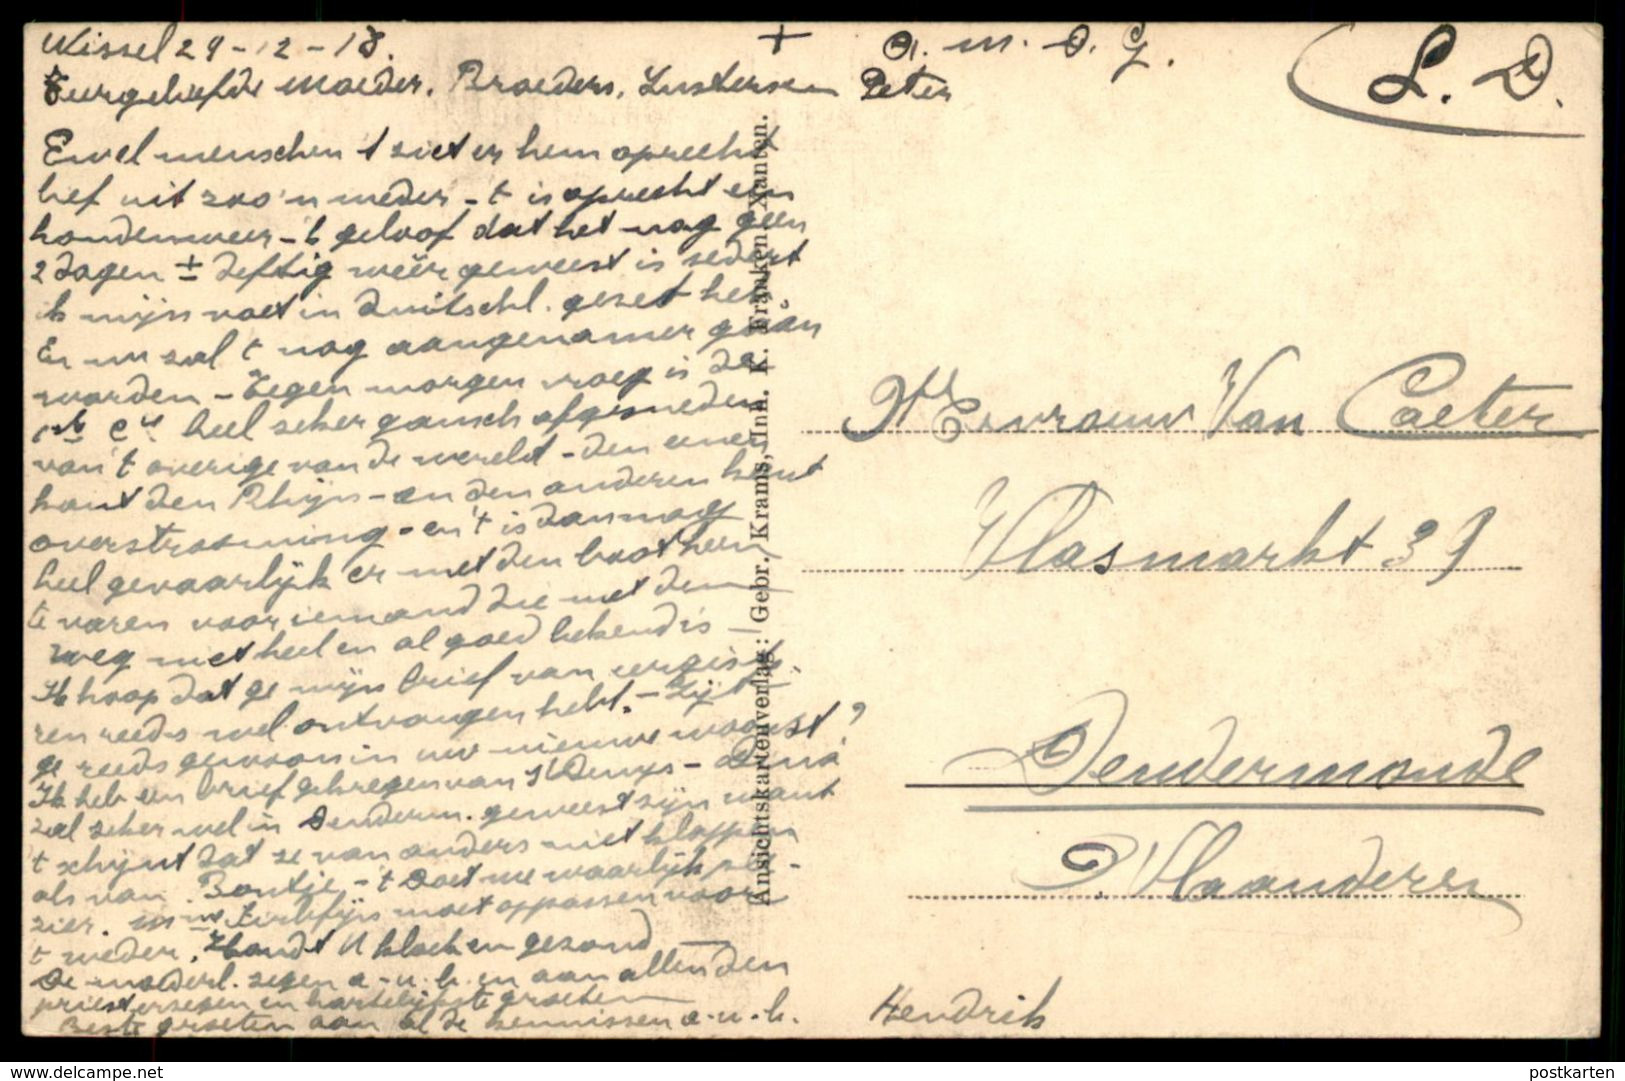 Wissel 29-12-18.
+
A. M. D. G.
L. D.
Teergeliefde Moeder, Broeders, Zusters en Peter
Enwel menschen 't ziet er hem oprecht
lief uit zoo'n weder - 't is oprecht een
hondenweer - 'k geloof dat het nog geen
2 dagen ± deftig weêr geweest is sedert
ik mijn voet in Duitschl. gezet heb.
En nu zal 't nog aangenamer gaan
worden - Tegen morgen vroeg is de
heel zeker gansch afgesneden
van 't overige van de wereld - den eenen
kant den Rhijn - en den anderen kant
overstrooming - en 't is dan nog
heel gevaarlijk er met den boot heen
te varen voor iemand die met den
weg niet heel en al goed bekend is -
Ik hoop dat ge mijn brief van eergiste-
ren reeds wel ontvangen hebt. - Zijt
ge reeds gewoon in uw nieuwe woonst?
Ik heb een brief gekregen van St Denys -
zal zeker wel in Denderm. geweest zijn want
't schijnt dat ze van anders niet klappen
als van Bontje - 't doet me waarlijk ple-
zier. moet oppassen voor
't weder. Houdt U kloek en gezond -
De moederl. zegen a.u.b. en aan allen den
priesterzegen en hartelijkste groeten
Beste groeten aan al de kennissen a.u.b.
Hendrik
Ansichtskartenverlag: Gebr. Krams, Inh. K. Franken, Xanten.
Mevrouw Van Caeter
Vlasmarkt 39
Dendermonde
Vlaanderen
www.delcampe.net
postkarten